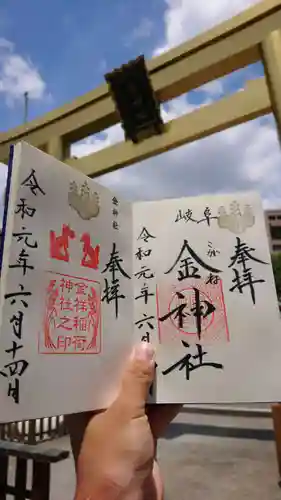 奉拝
岐阜
こがね
金神社
令和元年六
奉拝
金
金祥稲荷神社之印
令和元年六月十四日